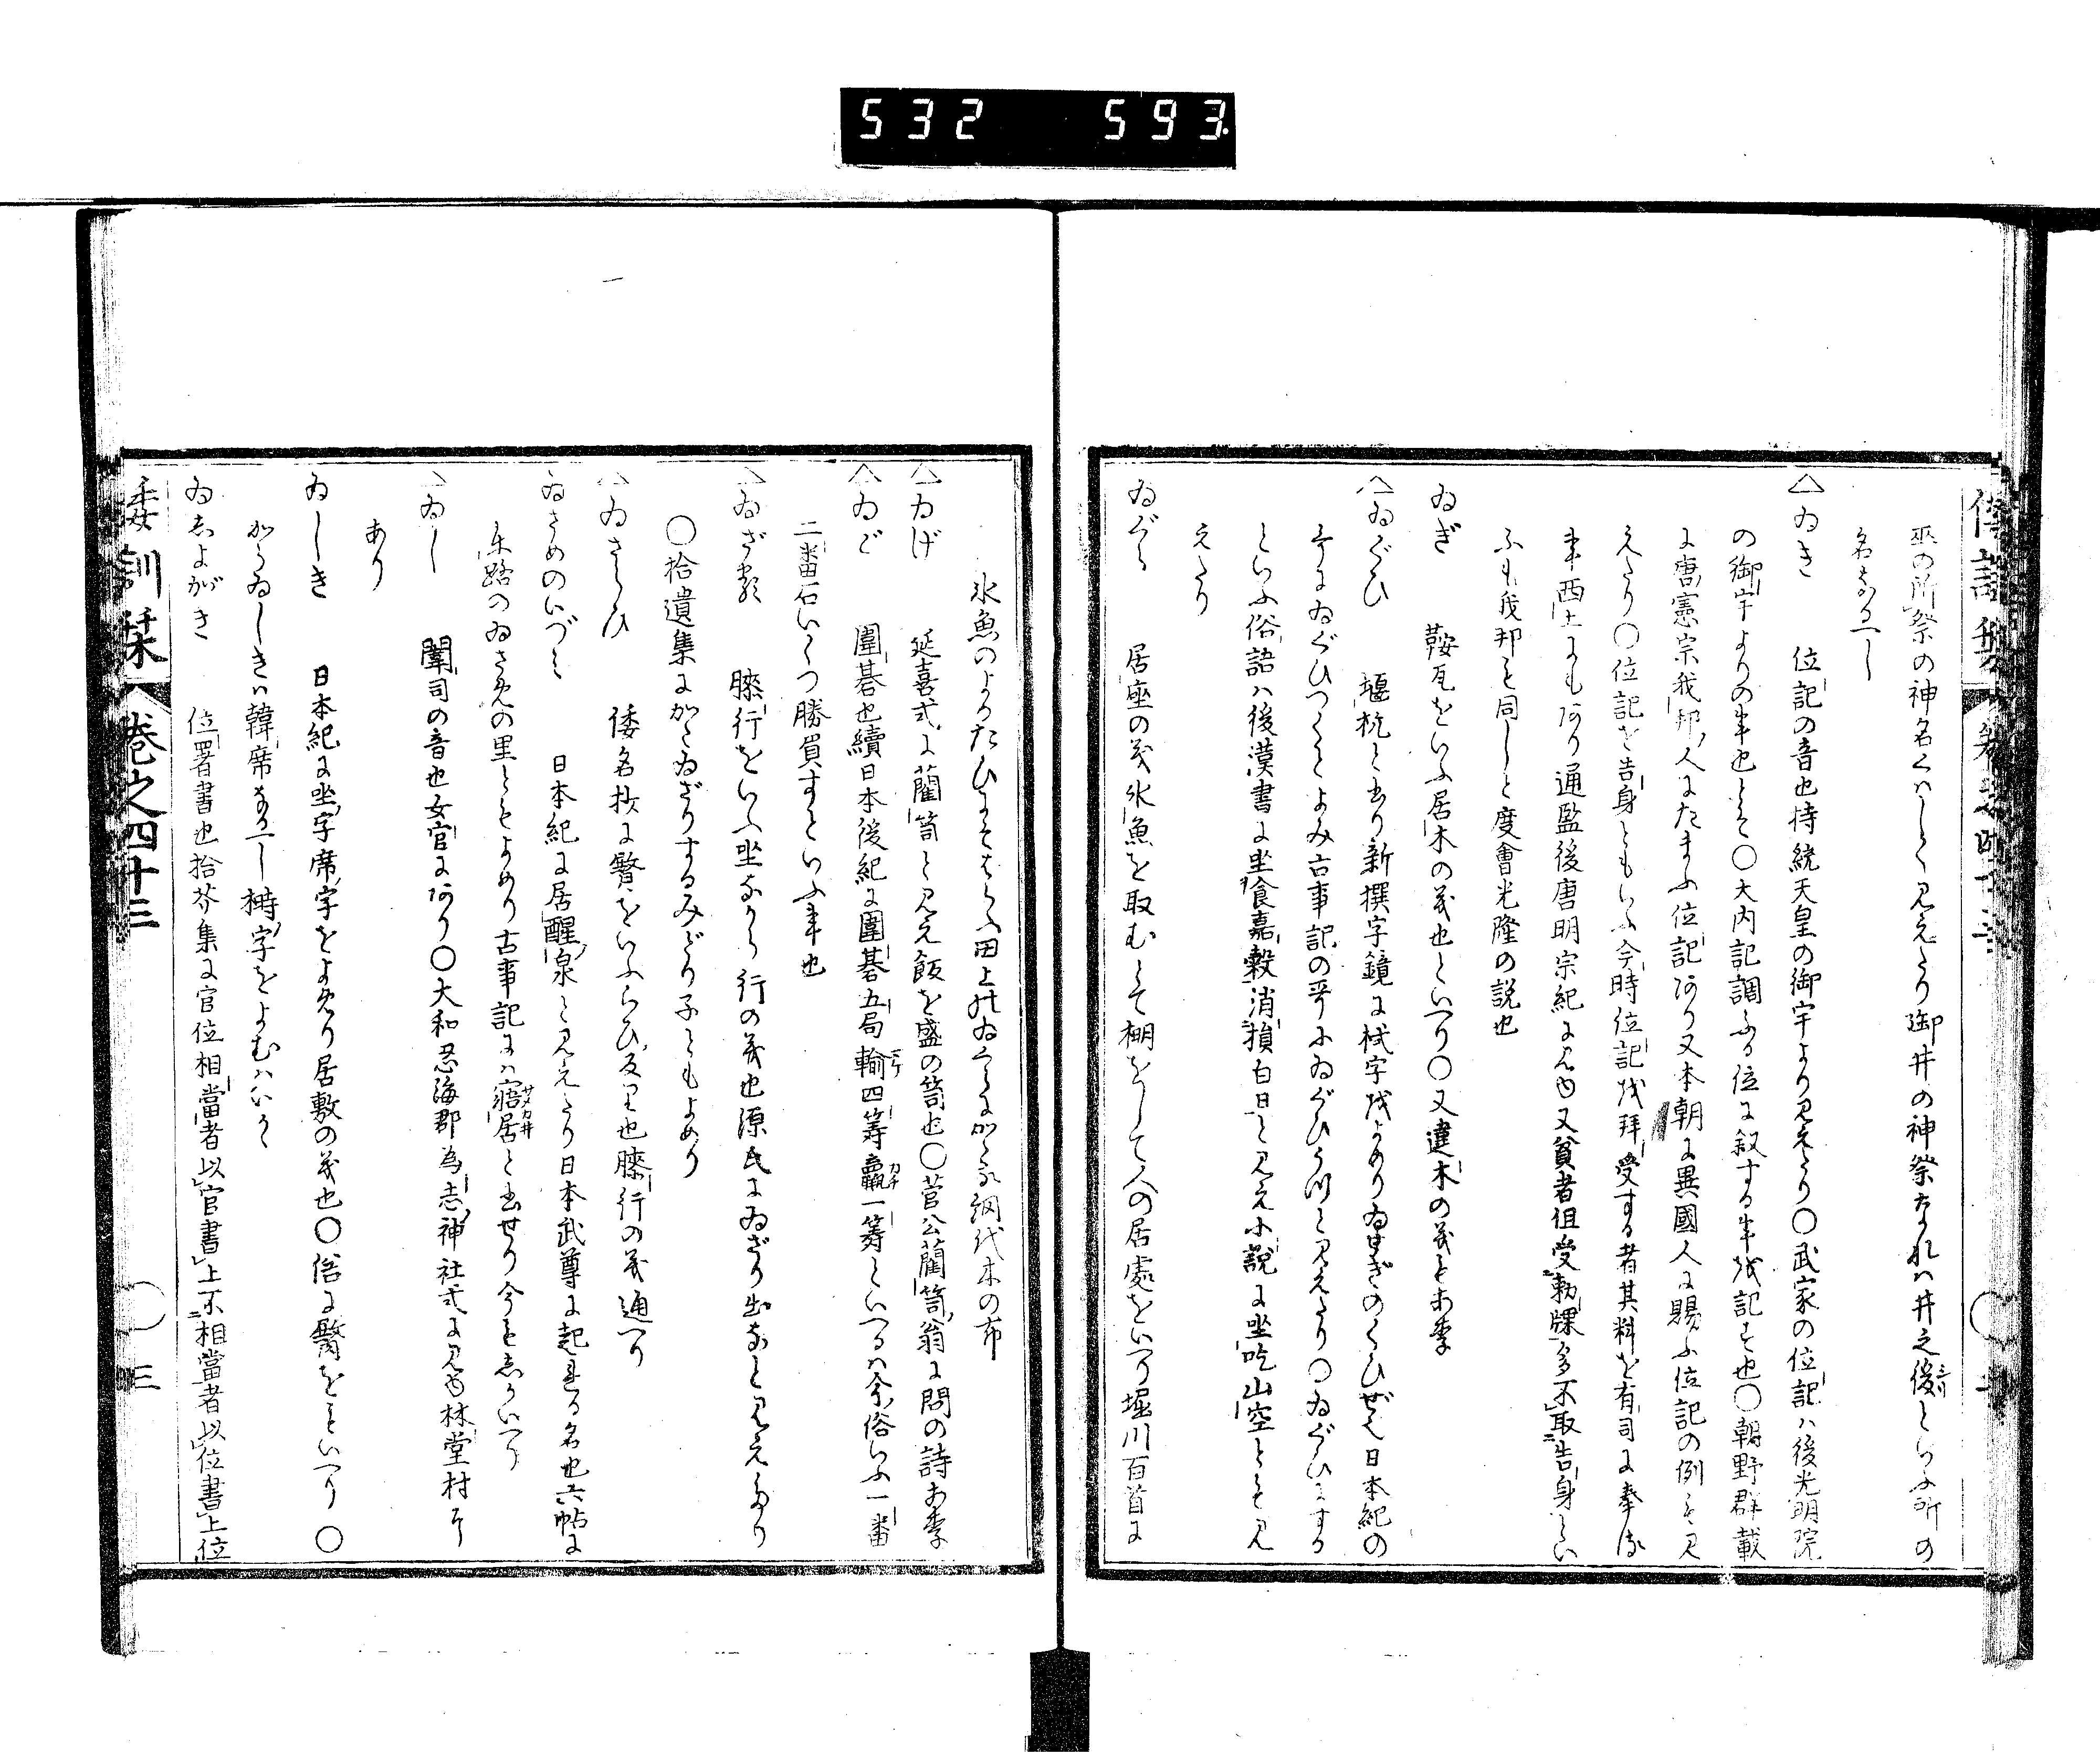 532 593
巫の所祭の神名くはしく見えたり御井の神祭なれハ井之後といふ所の
名なるへし
△ゐき 位記の音也持統天皇の御宇より見えたり〇武家の位記ハ後光明院
の御宇よりの事也とそ〇大内記調ふる位に叙する事を記す也〇朝野群載
に唐憲宗我邦人にたまふ位記あり又本朝に異國人に賜ふ位記の例も見
えたり〇位記を告身ともいふ今時位記を拜受する者其料を有司に奉る
事西土にもあり通鑑後唐明宗紀に見ゆ又貧者但受勅牒多不取告身とい
ふも我邦と同しと度會光隆の説也
ゐぎ 鞍瓦をいふ居木の義也といへり〇又違木の義もあり
△ゐぐひ 堰杭と書り新撰字鏡に栻字をよめりゐせぎのくひぜ也日本紀の
哥にゐぐひつくとよみ古事記の哥にゐぐひうちと見えたり〇ゐぐひする
といふ俗語ハ後漢書に坐食嘉穀消損白日と見え小説に坐吃山空とも見
えたり
ゐぐら 居座の義氷魚を取むとて棚をして人の居處をいへり堀川百首に
氷魚のよるたひにそはらふ田上やゐくらにかくる網代木の布
△ゐげ 延喜式に藺笥と見え飯を盛の笥也〇菅公藺笥翁に問の詩あり
△ゐご 圍碁也續日本後紀に圍碁五局輸四籌贏一籌といへるハ今俗いふ一番
二番石いくつ勝負すといふ事也
△ゐざる 膝行をいふ坐なから行の義也源氏にゐざり出なと見えたり
〇拾遺集にかくゐざりするみどり子ともよめり
△ゐさらひ 倭名抄に臀をいふらひ反り也膝行の義通へり
ゐさめのいづミ 日本紀に居醒泉と見えたり日本武尊に起れる名也六帖に
朱路のゐさめの里ともよめり古事記にハ寤居と書せり今もしかいへり
△ゐし 闈司の音也女官にあり〇大和忍海郡為志神社式に見ゆ林堂村に
あり
ゐしき 日本紀に坐字席字をよめり居敷の義也〇俗に臀をもいへり〇
からゐしきハ韓席なるへし榯字をよむハいかゝ
ゐしよがき 位署書也拾芥集に官位相當者以官書上不相當者以位書上位
倭訓栞 巻之四十三 三